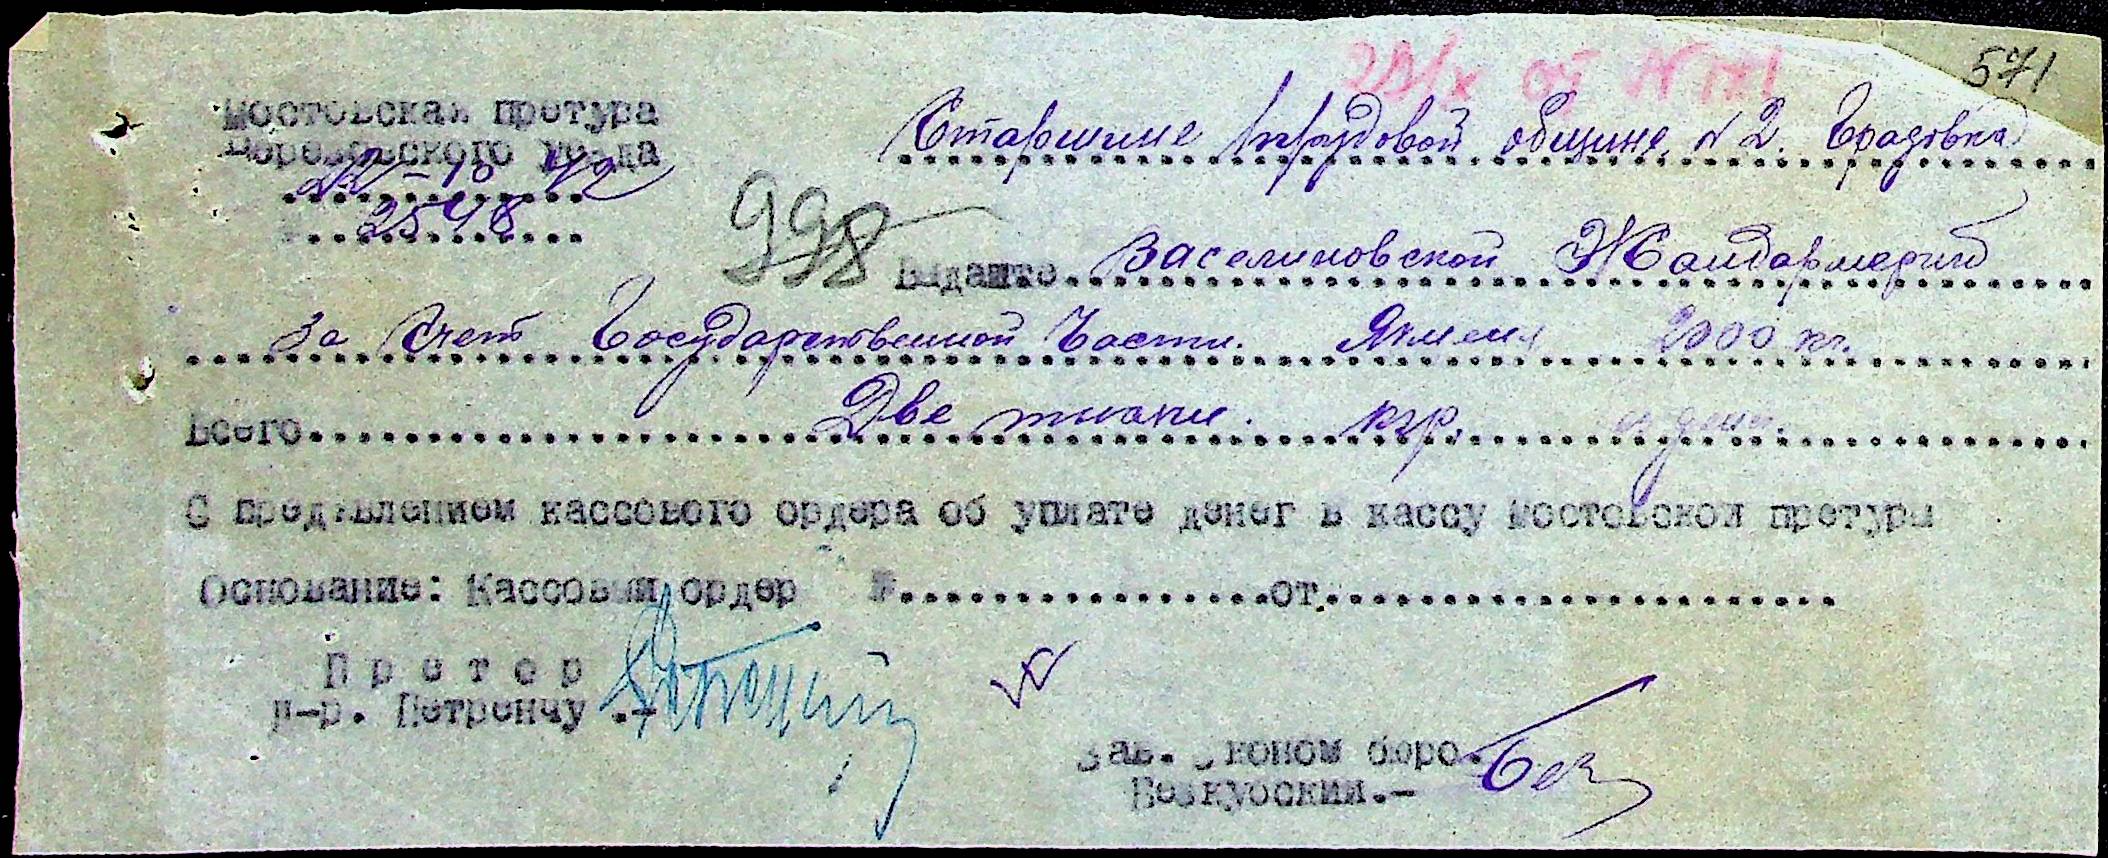 571
Мостовская претура
Березовского уезда
22-10 42
2548
998
Старшине трудовой общине N 2. Градовка
Выдайте Васелиновской Жандармерии
за счет Государственной Части. Ячменя 2000 кг.
Всего Две тысячи. кгр.
С предявлением кассового ордера об уплате денег в кассу Мостовской претуры
Основание: Кассовый ордер №.................от........................
Претор
п-р. Петренчу .-
Зав. Эконом бюро.